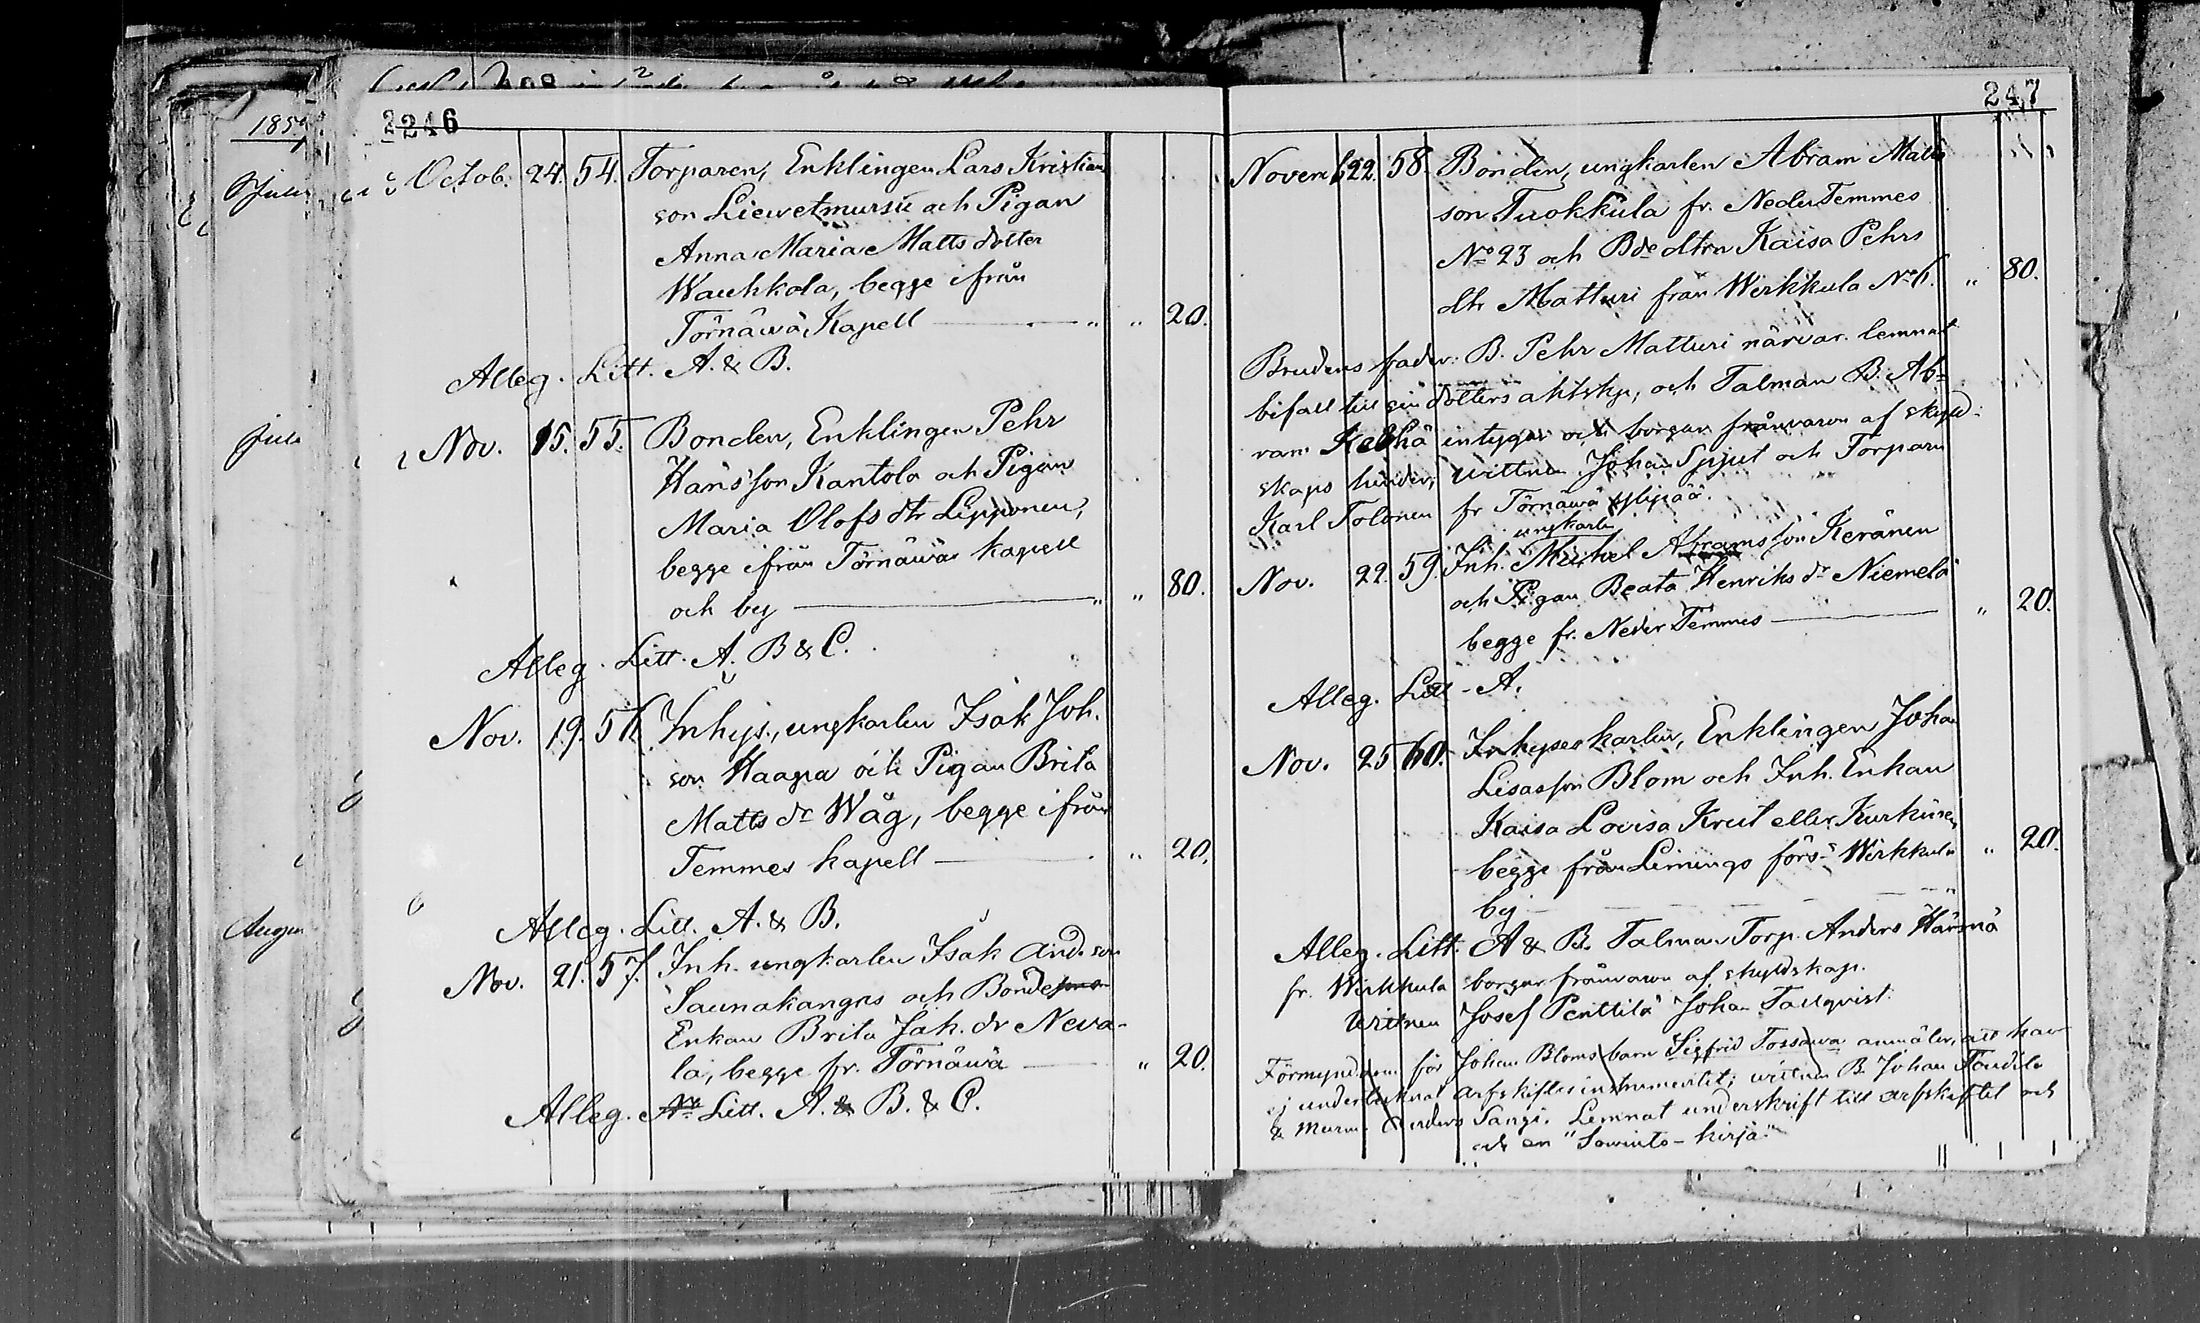 1859
Julii
Juli
Augu
246
Octob. 24. 54. Torparen, Enklingen Lars Kristians
son Liewetmursu och Pigan
Anna Maria Matts dotter
Wauhkola, begge ifrån
Törnäwä Kapell — " " 20.
Alleg. Litt. A. & B.
Nov. 15. 55. Bonden, Enklingen Pehr
Hans'son Kantola och Pigan
Maria Olofs dtr Lipponen,
begge ifrån Törnäwä kapell
och by — " " 80.
Alleg. Litt. A. B & C.
Nov. 19. 56. Inhys., ungkarlen Isak Joh.
son Haapa och Pigan Brita
Matts dr Wåg, begge ifrån
Temmes kapell — " 20.
Alleg. Litt. A. & B.
Nov. 21. 57. Inh. ungkarlen Isak And. son
Saunakangas och Bonde
Enkan Brita Jak. dr Neva-
la, begge fr. Törnäwä — " 20.
Alleg. No Litt. A. & B. & C.
247
Novemb 22. 58. Bonden, ungkarlen Abram Matts
son Tuokkula fr. Neder Temmes
No 23 och Bde dtrn Kaisa Pehrs
dtr Matturi från Wirkkula No 6. " 80.
Brudens fader: B. Pehr Matturi närvar. lemnat
bifall till sin dotters äktskp, och Talman B. Ab-
ram Keskiä intygar och borgar frånvaron af skyld-
skaps hinder, wittnen Johan Spjut och Torparn
Karl Tolonen fr Törnäwä ylipää.
ungkarln
Nov. 22. 59. Inh. Mickel Abrams son Keränen
och Pigan Beata Henriks dr Niemelä
begge fr. Neder Temmes — " 20.
Alleg. Litt - A.
Nov. 25. 60. Inhyses karlen, Enklingen Johan
Lisasson Blom och Inh. Enkan
Kaisa Lovisa Krut eller Kurkinen
begge från Limingo förs: Wirkkula " 20.
by — "
Alleg. Litt. A & B. Talman Torp. Anders Härmä
fr. Wirkkula borgar frånvaron af skyldskap.
Wittnen Josef Penttilä Johan Tallqvist.
Förmyndaren för Johan Bloms barn Sigfrid Tossawa anmäler, att han
ej undertecknat arfskiftesinstrumentet; wittnen B. Johan
& Murm. Anders Sangi. Lemnat underskrift till arfskiftet och
och en "Sowinto-kirja."